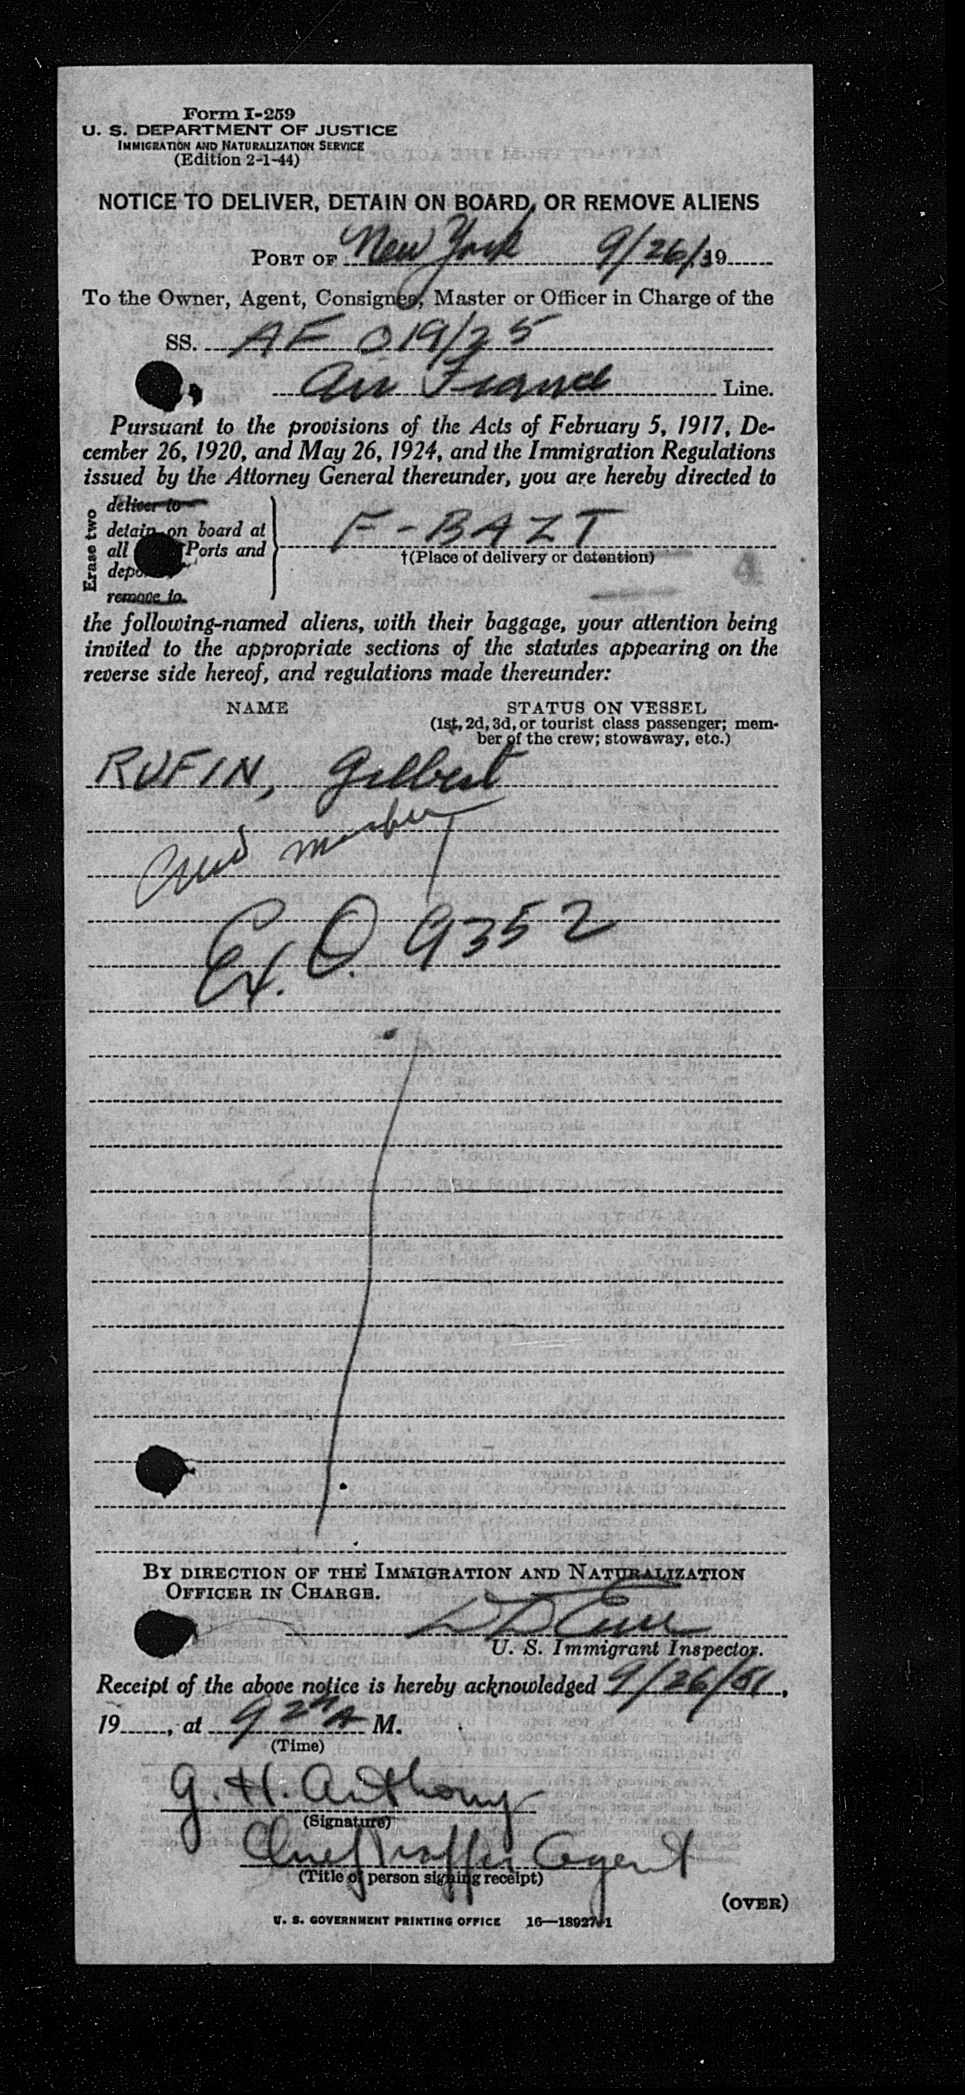 Form I-259
U. S. DEPARTMENT OF JUSTICE
IMMIGRATION AND NATURALIZATION SERVICE
(Edition 2-1-44)
NOTICE TO DELIVER, DETAIN ON BOARD, OR REMOVE ALIENS
PORT OF New York 9/26/19
To the Owner, Agent, Consignee, Master or Officer in Charge of the
SS. AF 019/25
Air France Line.
Pursuant to the provisions of the Acts of February 5, 1917, De-
cember 26, 1920, and May 26, 1924, and the Immigration Regulations
issued by the Attorney General thereunder, you are hereby directed to
Erase two
deliver to
detain on board at
all Ports and
remove to
F-BAZT
†(Place of delivery or detention)
4
the following-named aliens, with their baggage, your attention being
invited to the appropriate sections of the statutes appearing on the
reverse side hereof, and regulations made thereunder:
NAME STATUS ON VESSEL
(1st, 2d, 3d, or tourist class passenger; mem-
ber of the crew; stowaway, etc.)
RUFIN, Gilbert
crew member
Ex. O. 9352
BY DIRECTION OF THE IMMIGRATION AND NATURALIZATION
OFFICER IN CHARGE.
U. S. Immigrant Inspector.
Receipt of the above notice is hereby acknowledged 9/26/51,
19......, at 9 22 A M.
(Time)
G. H. Anthony
(Signature)
Chief Traffic Agent
(Title of person signing receipt)
(OVER)
U. S. GOVERNMENT PRINTING OFFICE 16—18927-1